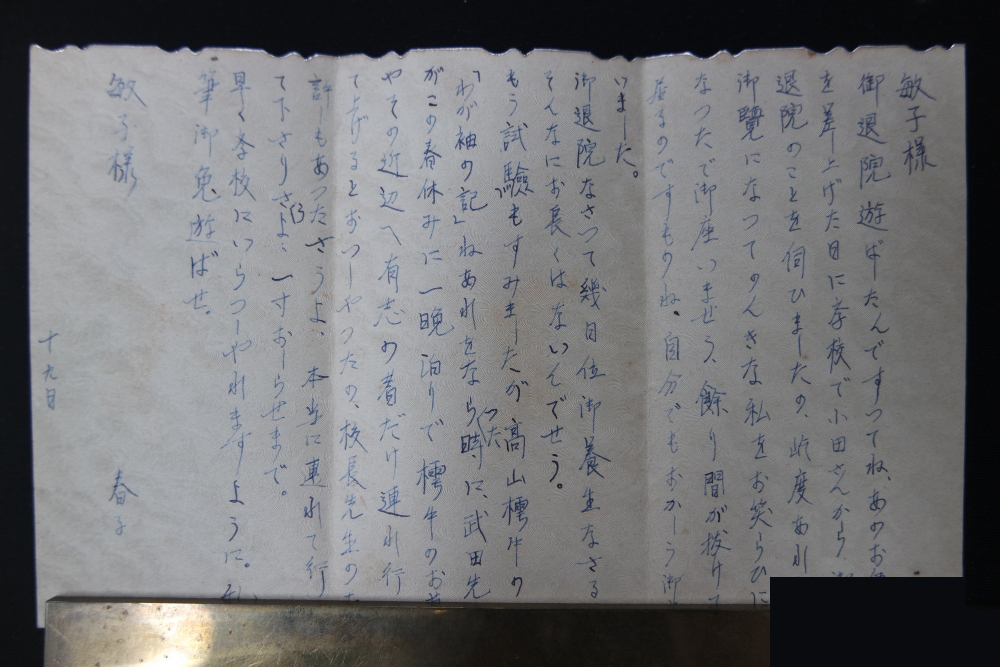 敏子様
御退院遊ばたんですつてね、あのお
を差上げた日に学校で小田さんから
退院のことを伺ひましたの、屹度あれ
御覧になつてのんきな私をお笑らひに
なつたで御座いませう、餘り間が抜けて
居るのですものね、自分でもおかしう御
いました。
御退院なさつて幾日位御養生なさる
そんなにお長くはないんでせう。
もう試験もすみましたが高山樗牛の
「わが袖の記」ねあれをならつた時に、武田先
がこの春休みに一晩泊りで樗牛のお
やその近辺へ有志の者だけ連れ行
て上げるとおつしやつたの、校長先生の
許しもあつたさうよ、本当に連れて行
て下さりさうよ、一寸おしらせまで。
早く学校にいらつしやれますように。乱
筆御免遊ばせ。
十九日
春子
敏子様